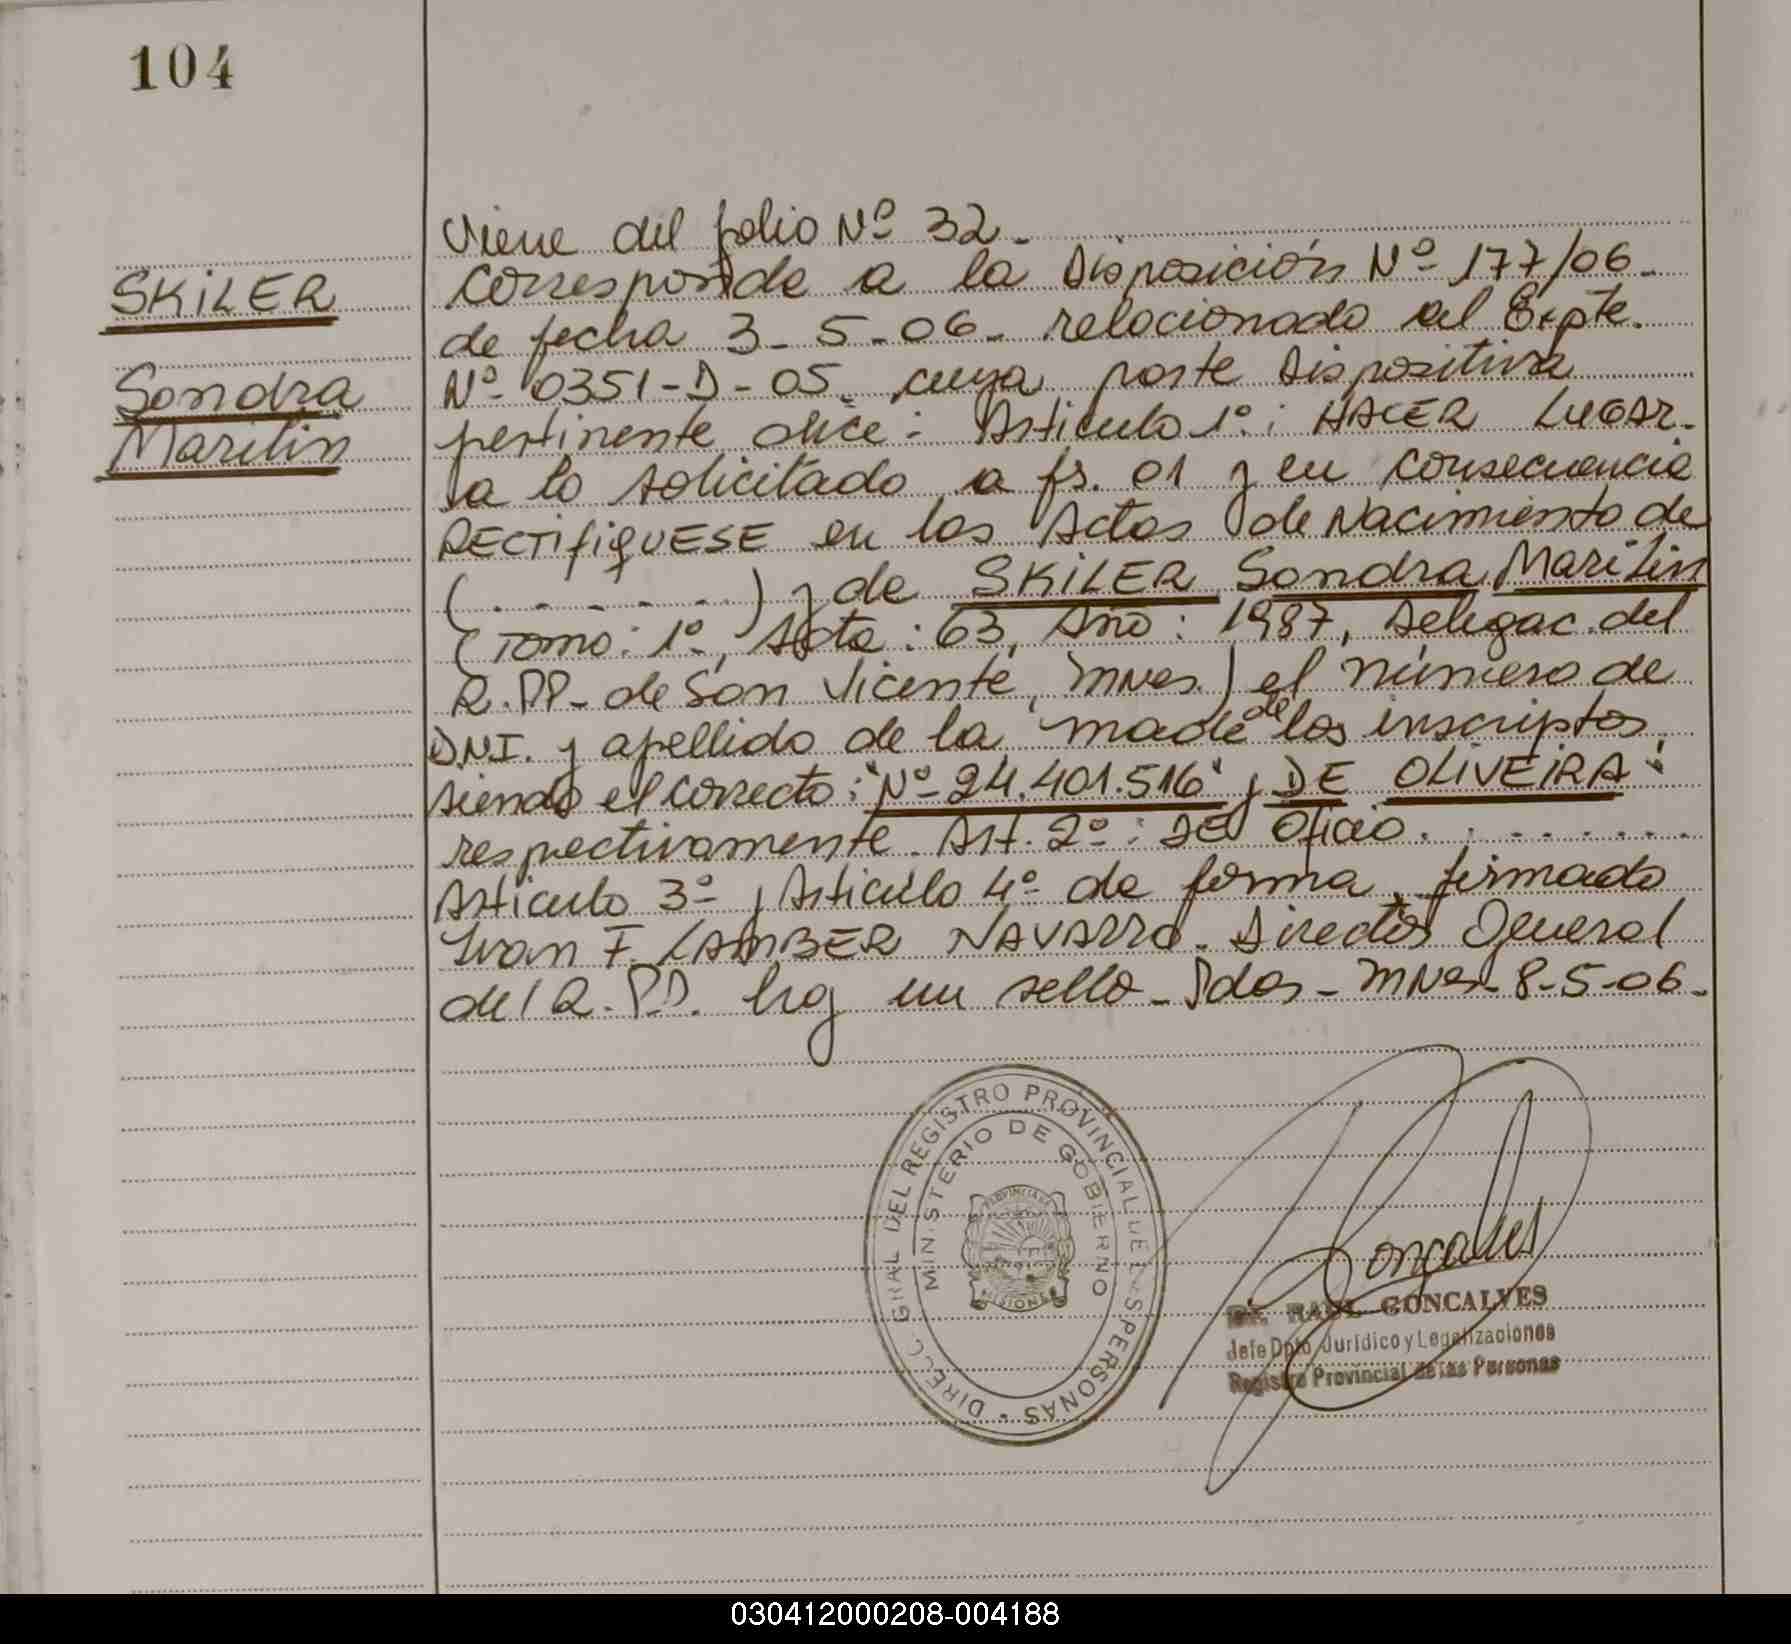 104
SKILER
Sandra
Marilin
Viene del folio Nº 32.
Corresponde a la Disposición Nº 177/06.
de fecha 3-5-06- relacionado al Expte.
Nº 0351-D-05, cuya parte Dispositiva
pertinente dice: Articulo 1º: HACER LUGAR.
a lo solicitado a fs. 01 y en consecuencia
RECTIFIQUESE en las Actas de Nacimiento de
(. - - - - - .) y de SKILER Sandra Marilin
(Tomo: 1º, Acta: 63, Año: 1987, Delegac. del
R.PP- de San Vicente, Mnes.) el número de
D.N.I. y apellido de la made de los inscriptos,
siendo el correcto: "Nº 24.401.516" y DE OLIVEIRA"
respectivamente. Art. 2º: DE Oficio. . - - - - - -
Articulo 3º y Articulo 4º de forma, firmado
Ivan F. LAMBER NAVARRO. Director General
del R.P.P. hay un sello - Pdas - Mnes- 8-5-06-
DIRECC GRAL DEL REGISTRO PROVINCIAL DE LAS PERSONAS
MINISTERIO DE GOBIERNO
PROVINCIA DE
MISIONES
Goncalves
DR. RAUL GONCALVES
Jefe Dpto Jurídico y Legalizaciones
Registro Provincial de las Personas
030412000208-004188